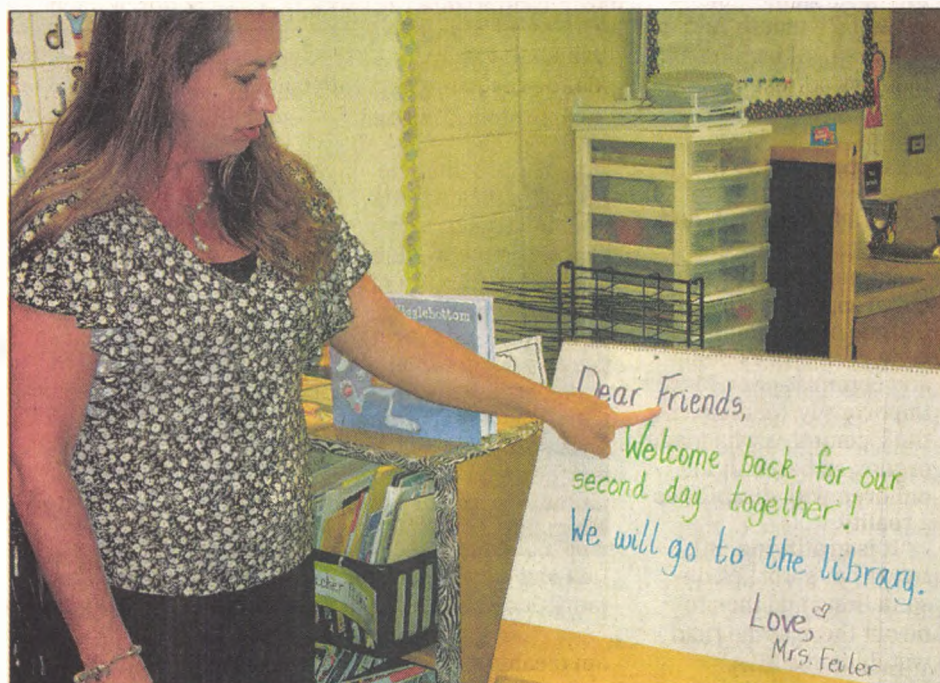 d
j
gglebottom
Dear Friends,
Welcome back for our
second day together!
We will go to the library.
Love,
Mrs. Feiler